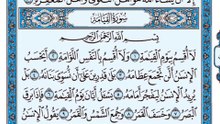 سُورَةُ القِيَامَةِ
بِسْمِ اللَّهِ الرَّحْمَٰنِ الرَّحِيمِ
لَا أُقْسِمُ بِيَوْمِ الْقِيَامَةِ ۝ وَلَا أُقْسِمُ بِالنَّفْسِ اللَّوَّامَةِ ۝ أَيَحْسَبُ
الْإِنسَانُ أَلَّن نَّجْمَعَ عِظَامَهُ ۝ بَلَىٰ قَادِرِينَ عَلَىٰ أَن نُّسَوِّيَ بَنَانَهُ ۝ بَلْ
يُرِيدُ الْإِنسَانُ لِيَفْجُرَ أَمَامَهُ ۝ يَسْأَلُ أَيَّانَ يَوْمُ الْقِيَامَةِ ۝ فَإِذَا بَرِقَ
الْبَصَرُ ۝ وَخَسَفَ الْقَمَرُ ۝ وَجُمِعَ الشَّمْسُ وَالْقَمَرُ ۝ يَقُولُ الْإِنسَانُ